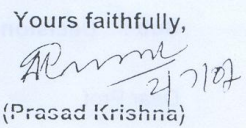 Yours faithfully,
2/7/07
(Prasad Krishna)